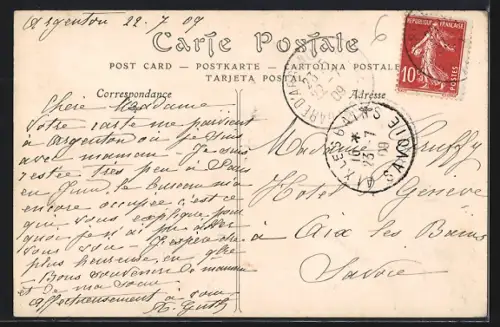 Argenton 22-7/09
Carte Postale
POST CARD — POSTKARTE — CARTOLINA POSTALE
TARJETA POSTAL
Correspondance
Adresse
RÉPUBLIQUE FRANÇAISE
10c
POSTES
AIX-LES-BAINS
SAVOIE
23-7
09
Chère Madame
Votre carte me parvient
à Argenton où je suis
avec maman. Je suis
restée très peu à Paris
en Juin, le bureau m'a
encore occupée, c'est ce
que vous explique pour
quoi je n'ai pu aller
vous voir. J'espère être
plus heureuse en
Bons souvenirs de maman
et de ma sœur
affectueusement à vous
Madame
Hotel Genève
à Aix les Bains
Savoie